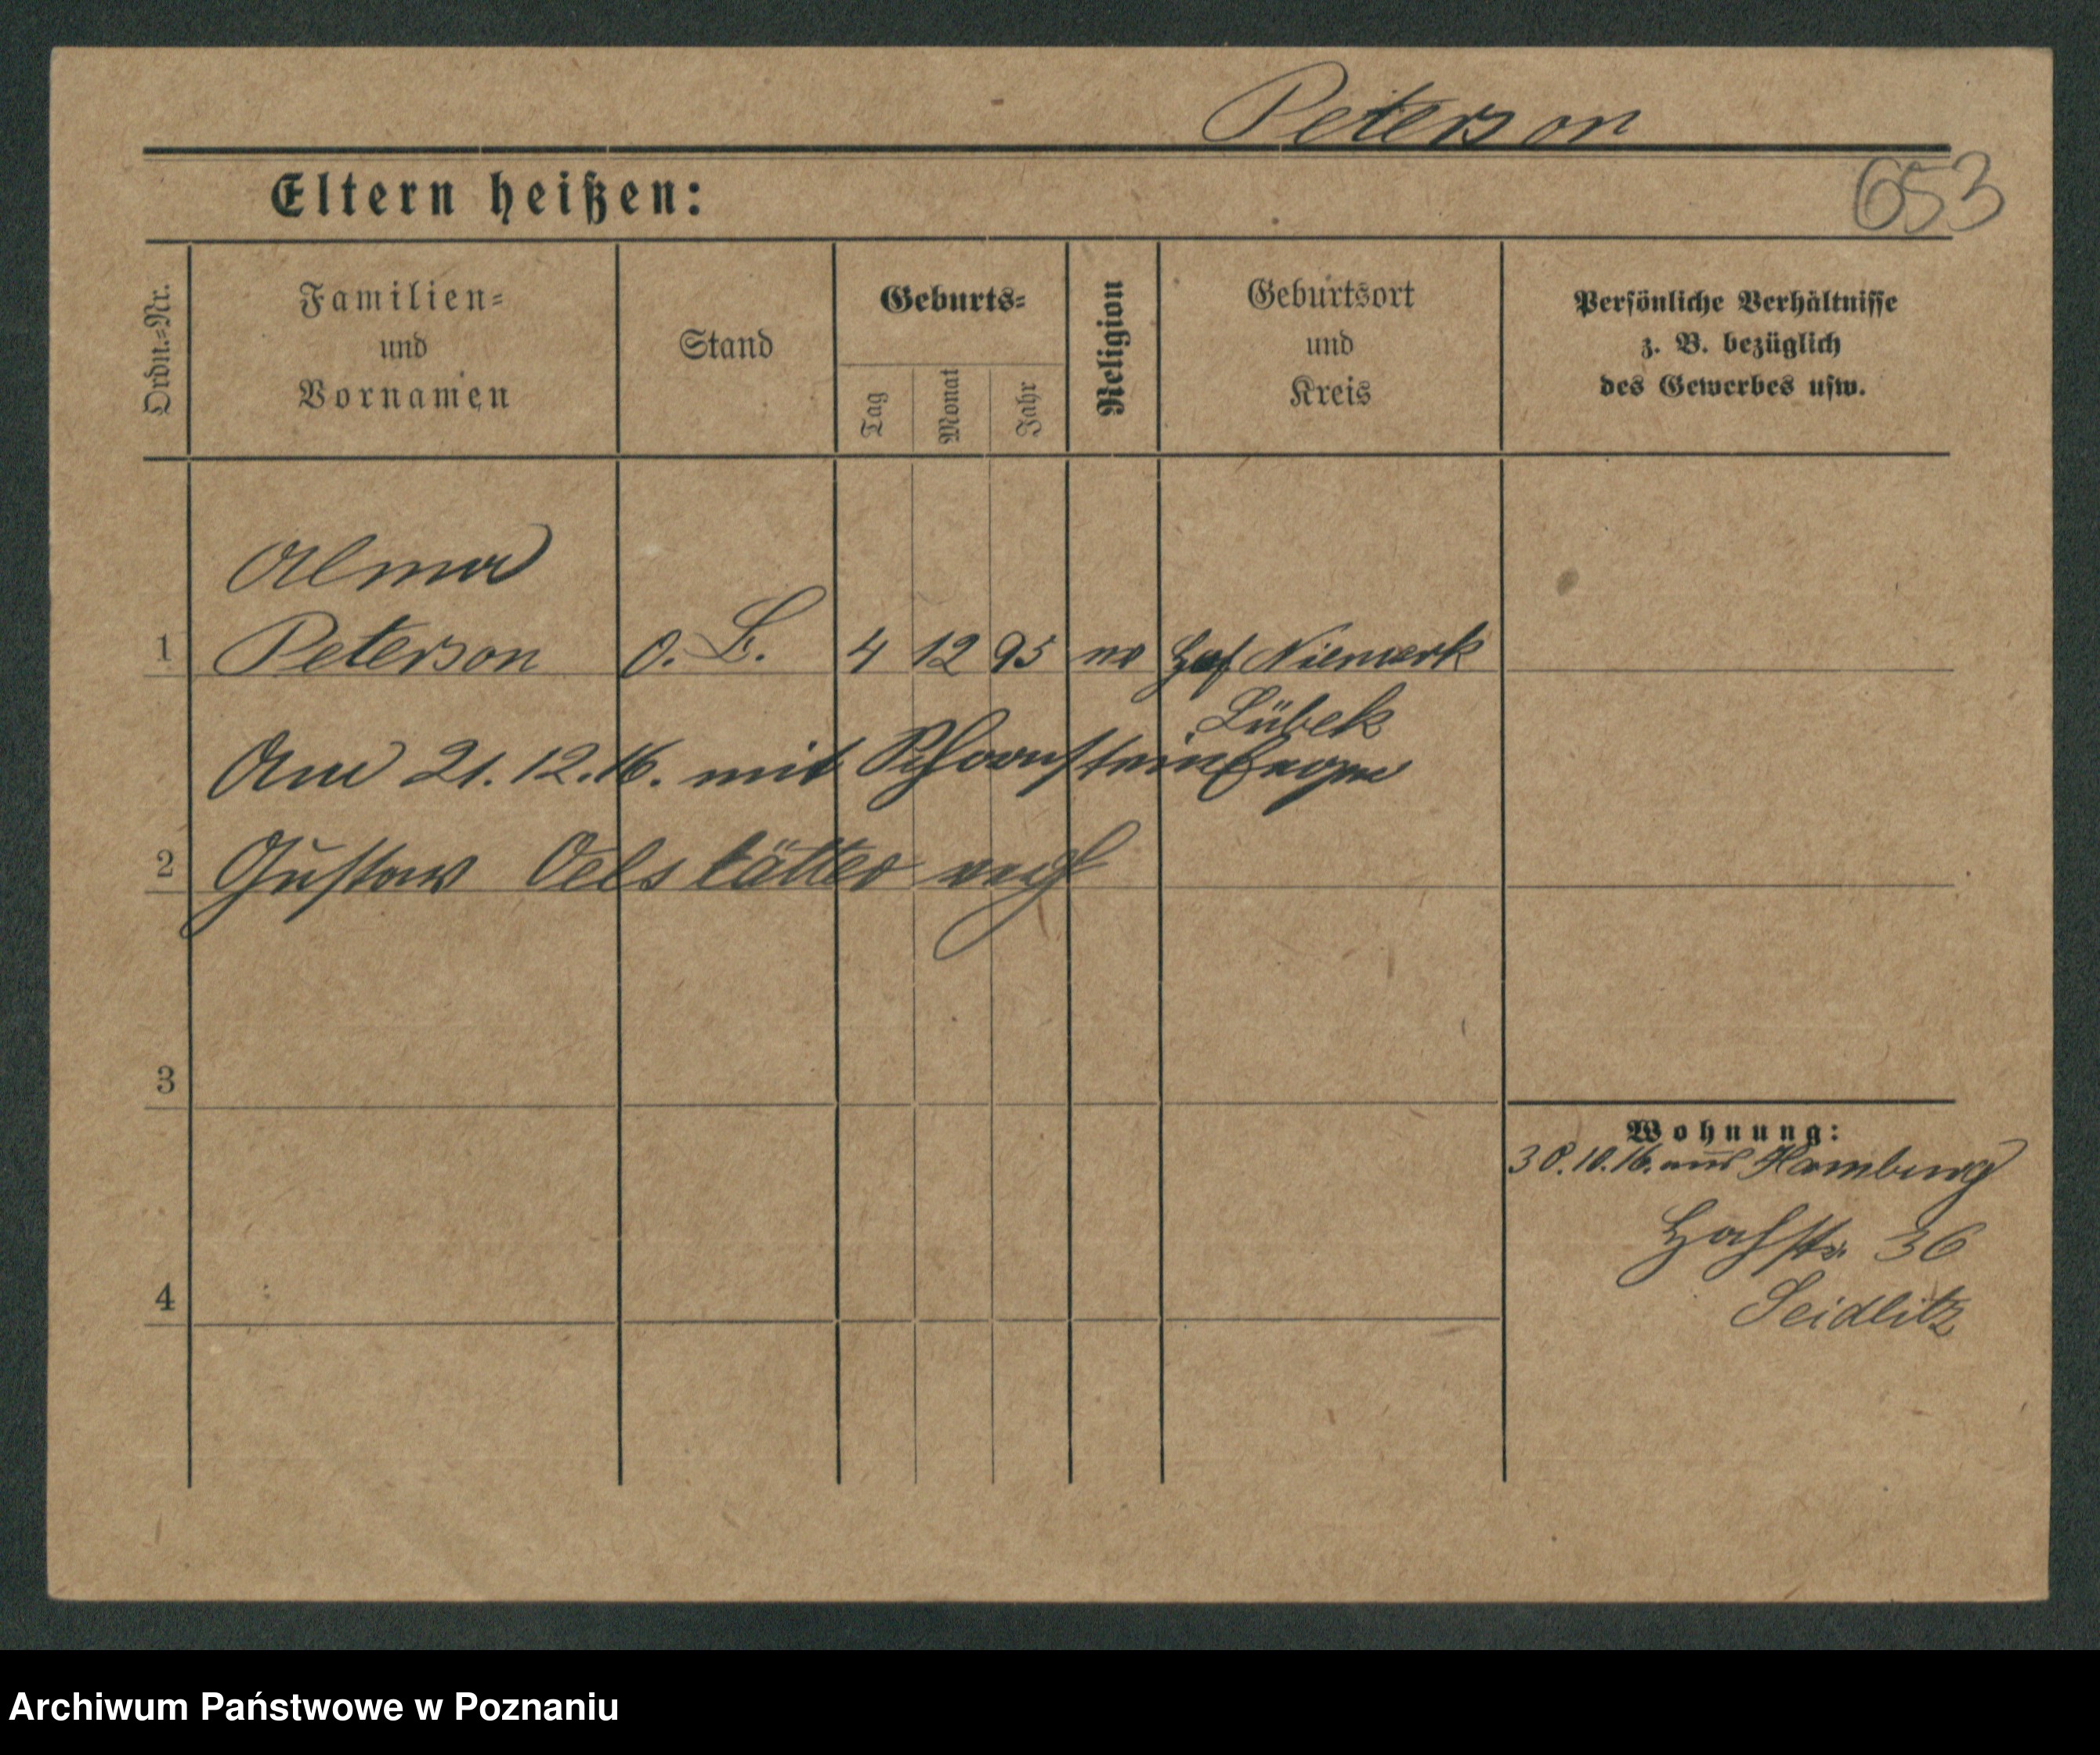 Peterson
653
Eltern heißen:
Ordn.-Nr.
Familien-
und
Vornamen
Stand
Geburts-
Tag
Monat
Jahr
Religion
Geburtsort
und
Kreis
Persönliche Verhältnisse
z. B. bezüglich
des Gewerbes usw.
Alma
1 Peterson o. B. 4 12 95 Hof Niemark
Lübek
Am 21.12.16. mit Schornsteinfeger
2 Gustav Oelstätter verh
3
4
Wohnung:
30.10.16. aus Hamburg
Hochstr. 36
Seidlitz
Archiwum Państwowe w Poznaniu